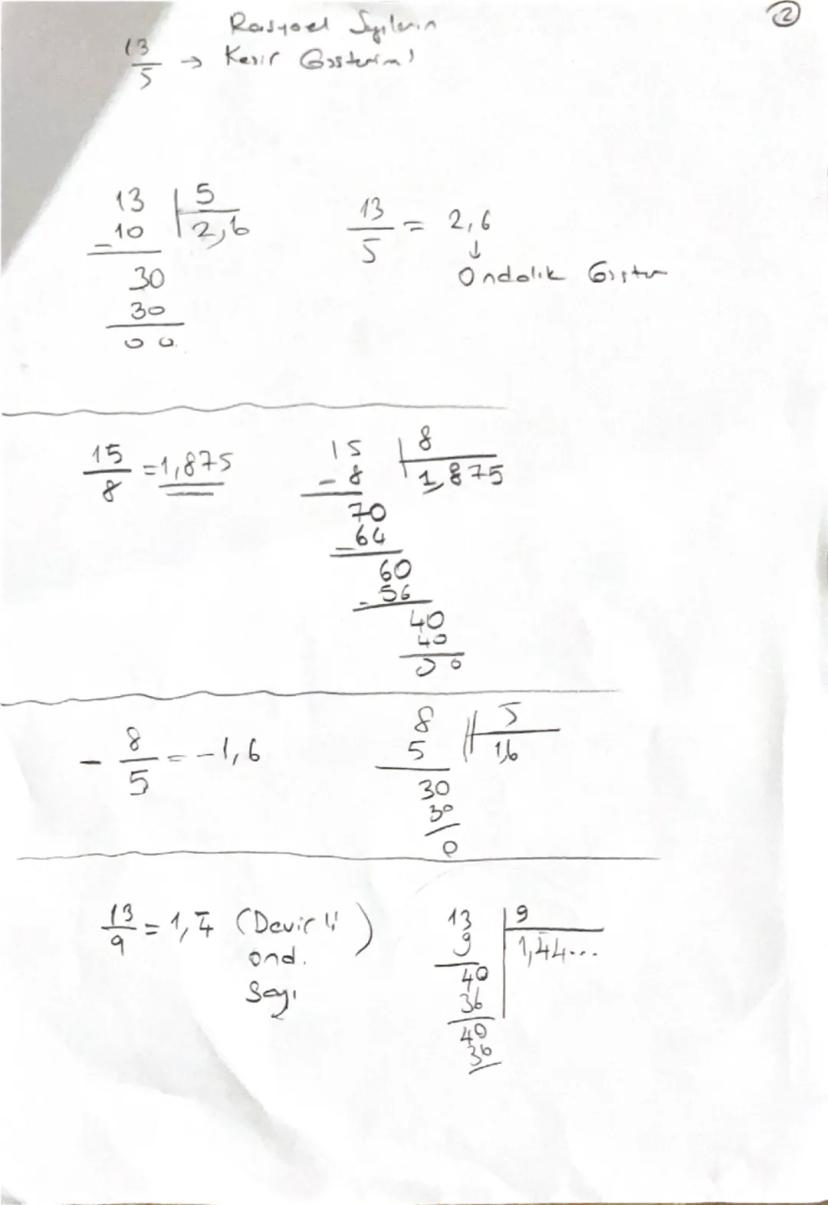 2
Rasyoel Sayıların
13/5 → Kesir Gösterimi
13 | 5
-10 2,6
30
30
00
13/5 = 2,6
↓
Ondalık Göster
15/8 = 1,875
15 | 8
-8 1,875
70
-64
60
-56
40
40
00
-8/5 = -1,6
8 | 5
5 1,6
30
30
0
13/9 = 1,4̅ (Devirli
ond.
Sayı)
13 | 9
9 1,44...
40
36
40
36